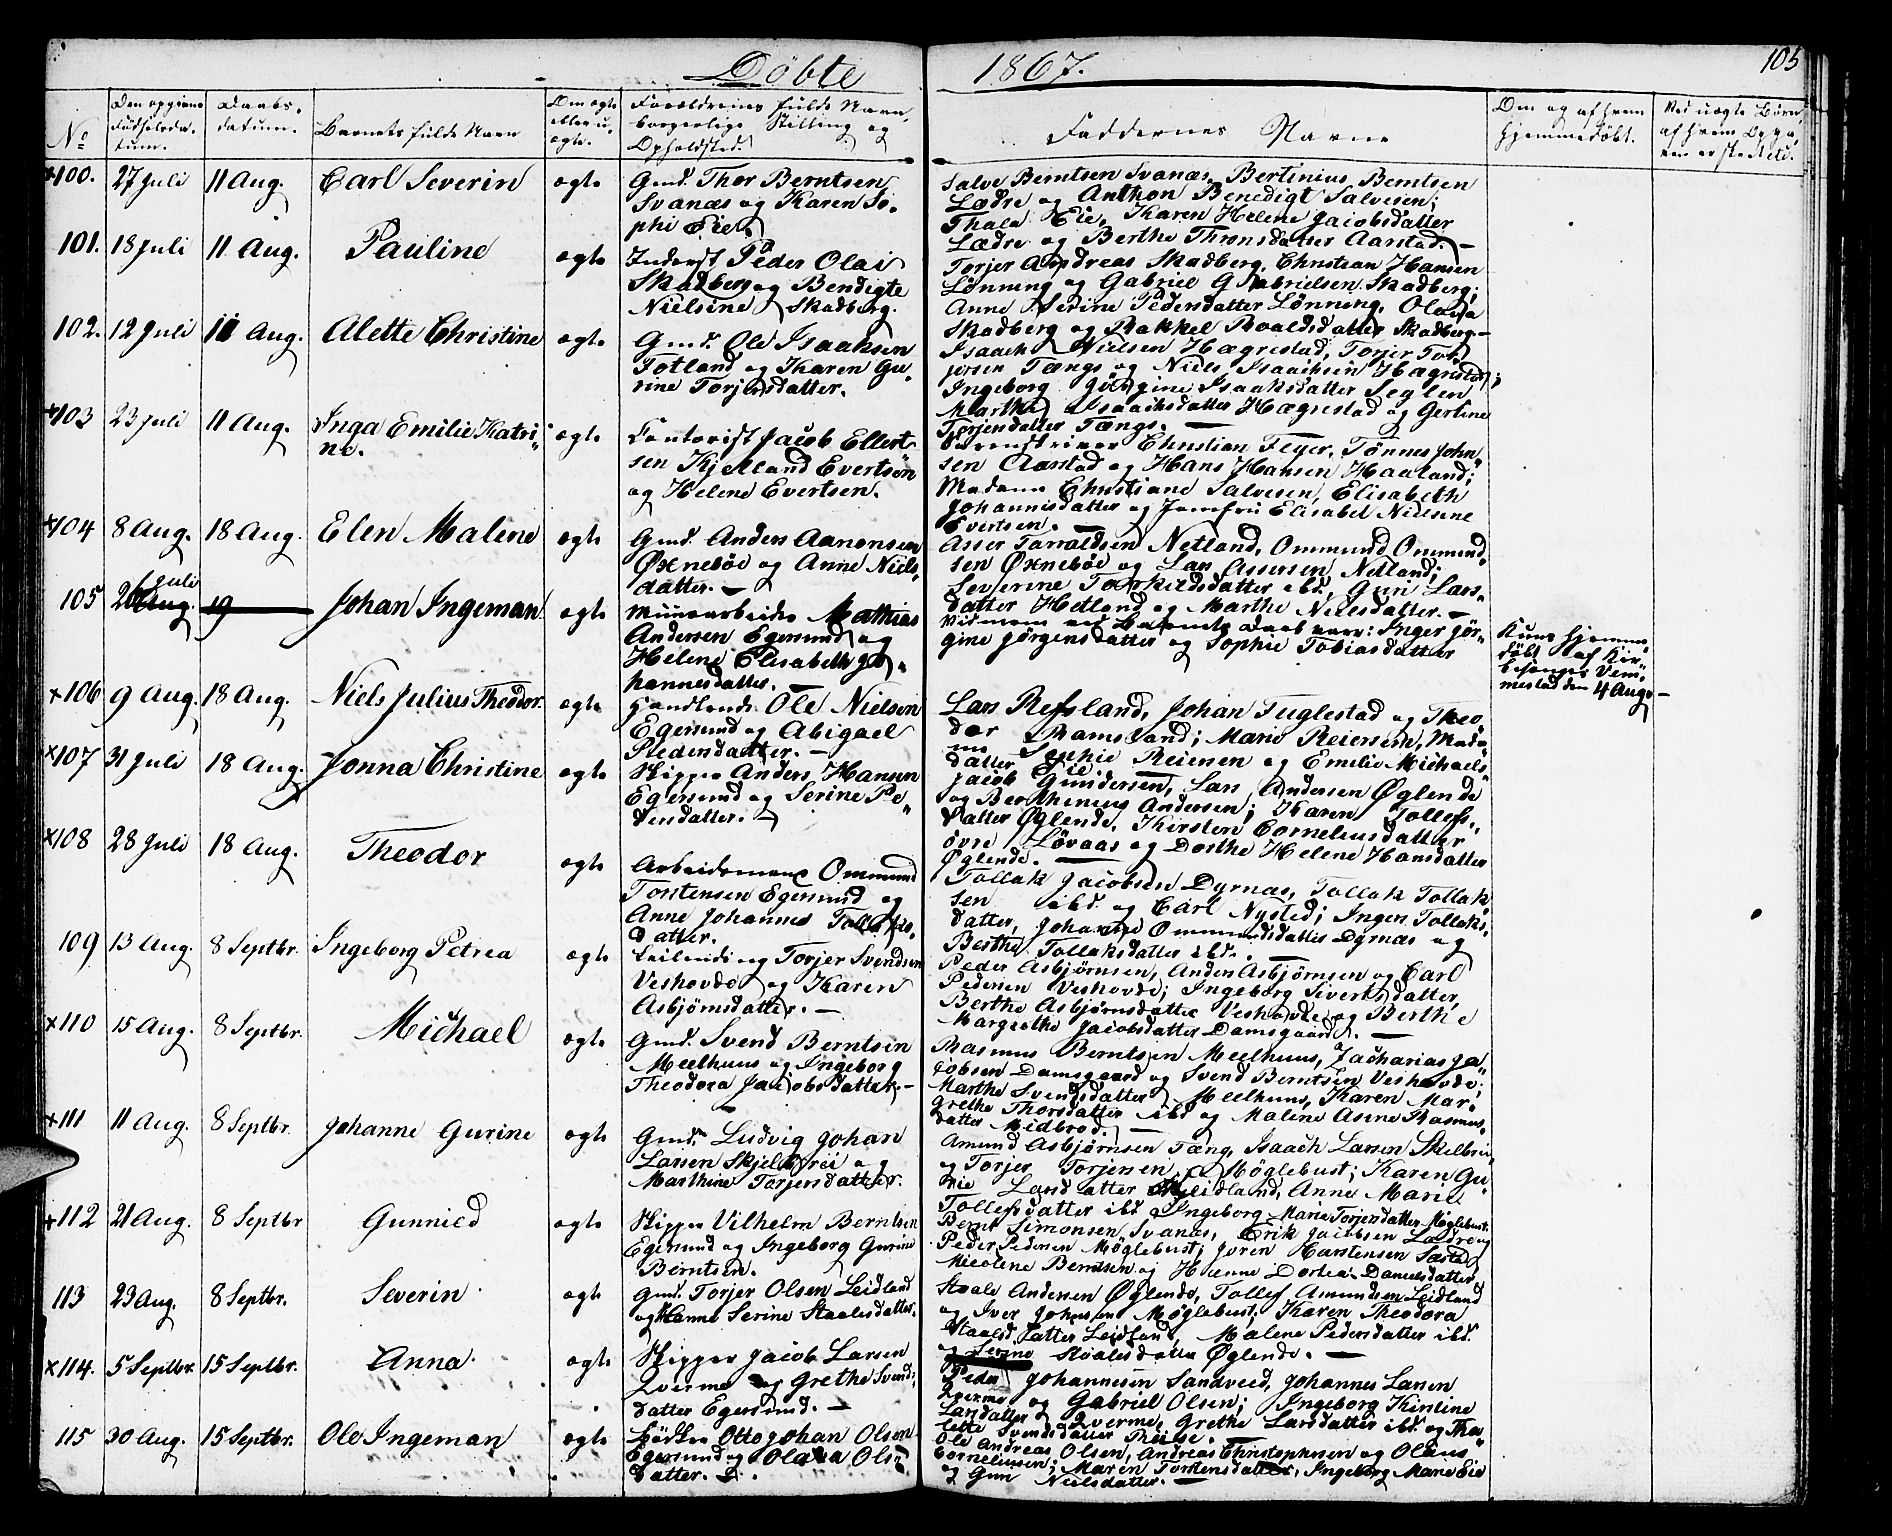 Døbte 1867. 105
No
Den opgivne Fødselsdatum.
Daabsdatum.
Barnets fulde Navn
Om ægte eller uægte.
Forældrenes fulde Navn, borgerlige Stilling og Opholdsted.
Faddernes Navne
Om og af hvem hjemmedøbt.
Ved uægte Børn, af hvem Opgaven er skeet etc.
×100. 27 Juli 11 Aug. Carl Severin ægte
Gmd. Thor Berntsen
Svanæs og Karen So-
phi Eie.
Salve Berntsen Svanæs, Bertinius Berntsen
Lædre og Anthon Benedigt Salvesen;
Thala Eie, Karen Helene Jacobsdatter
Lædre og Berthe Thronsdatter Aarstad. —
101. 18 Juli 11 Aug. Pauline ægte
Inderst Peder Olai
Skadberg og Bendigte
Nielsine Skadberg.
Torjer Andreas Skadberg, Christian Hansen
Lønning og Gabriel Gabrielsen Skadberg;
Anne Serine Pedersdatter Lønning, Olava
Skadberg og Rakkel Roaldsdatter Skadberg. —
102. 12 Juli 11 Aug. Alette Christine ægte
Gmd. Ole Isaaksen
Fotland og Karen Gu-
rine Torjersdatter.
Isaach Nielsen Hægrestad, Torjer Tob
jersen Tængs og Niels Isaachsen Hægrestad;
Ingeborg Jørgine Isaaksdatter Seglem
Marthe Isaachsdatter Hægrestad og Gertine
Torjersdatter Tængs. —
×103 23 Juli 11 Aug. Inga Emilie Katri-
ne. ægte
Contorist Jacob Ellert-
sen Kjelland Evertsen
og Helene Evertsen.
Christian Feyer, Tønnes John-
sen Aarstad og Hans Hansen Haaland;
Madame Christiane Salvesen, Elisabeth
Johannisdatter og Jomfru Elisabet Nielsine
Evertsen. —
×104 8 Aug. 18 Aug. Elen Malene ægte
Gmd. Anders Aanensen
Øxnebøe og Anne Niels-
datter. —
Asser Tarraldsen Netland, Ommund Ommund-
sen Øxnebøe og Lars Assersen Netland;
Severine Torkildsdatter ibd., Guri Lars-
datter Hetland og Marthe Nielsdatter. —
105 26 Juli 19 Johan Ingeman ægte
Minearbeider Mathias
Andersen Egersund og
Helene Elisabeth Jo-
hannesdatter.
Vidnerne ved Barnets Daab vare: Inger Jør-
gine Jørgensdatter og Sophie Tobiasdatter
Kuns hjemme-
døbt af Kir-
kesanger Vem-
mestad den 4 Aug. —
×106 9 Aug. 18 Aug. Niels Julius Theodor. ægte
Handlende Ole Nielsen
Egersund og Abigael
Pedersdatter. —
Lars Refsland, Johan Fuglestad og Theo-
dor Ramsland; Marie Reiersen, Mada-
me Sophie Reiersen og Emilie Michaels-
datter Eie
×107 31 Juli 18 Aug. Jonna Christine ægte
Skipper Anders Hansen
Egersund og Serine Pe-
dersdatter. —
Jacob Gundersen, Lars Andersen Øglende
og Berthinius Andersen; Karen Tollefs-
datter Øglende, Kirsten Corneliusdatter
øvre Løvaas og Dorthe Helene Hansdatter
Øglende. —
×108 28 Juli 18 Aug. Theodor ægte
Arbeidsmand Ommund
Torstensen Egersund og
Anne Johannes Tollaks-
datter.
Tollak Jacobsen Dyrnæs, Tollak Tollak-
sen ibd. og Carl Nysted; Inger Tollaks-
datter, Johanne Ommundsdatter Dyrnæs og
Berthe Tollaksdatter ibd. —
109 13 Aug. 8 Septbr. Ingeborg Petrea ægte
Leilending Torjer Svendsen
Veshovde og Karen
Asbjørnsdatter. —
Peder Asbjørnsen, Anders Asbjørnsen og Carl
Pedersen Veshovde; Ingeborg Sivertsdatter,
Berthe Asbjørnsdatter Veshovde og Berthe
Margrethe Jacobsdatter Damsgaard. —
×110 15 Aug. 8 Septbr. Michael ægte
Gmd. Svend Berntsen
Meelhuus og Ingeborg
Theodora Jacobsdatter. —
Rasmus Berntsen Meelhuus, Zacharias Ja-
cobsen Damsgaard og Svend Berntsen Veshovde;
Marthe Svendsdatter Meelhuus, Karen Mar-
grethe Thorsdatter ibd. og Malene Asine Rasmus-
datter Midbrød. —
×111 11 Aug. 8 Septbr. Johanne Gurine ægte
Gmd. Ludvig Johan
Larsen Skjelbrei og
Marthine Torjersdatter.
Amund Asbjørnsen Tæng, Isaach Larsen Skelbrei
og Torjer Torjersen Møglebust; Karen Gu-
rie Larsdatter Leidland, Anne Marie
Tollefsdatter ibd. Ingeborg Marie Torjersdatter Møglebust.
×112 21 Aug. 8 Septbr Gunnild ægte
Skipper Vilhelm Berntsen
Egersund og Ingeborg Gurine
Berntsen.
Bernt Simonsen Svanæs, Erik Jacobsen Lædre og
Peder Pedersen Møglebust; Joren Karstensen Sæsted
Nicolene Berntsen og Hanne Dortea Danielsdatter
113 23 Aug. 8 Septbr. Severin ægte
Gmd. Torjer Olsen Leidland
og Hanne Serine Staalesdatter.
Staale Andersen Øglende, Tollef Amundsen Leidland
og Iver Johnsen Møglebust; Karen Theodora
Staalesdatter Leidland, Malene Pedersdatter ibd.
og Serine Staalesdatter Øglende. —
×114. 5 Septbr 15 Septbr. Anna ægte
Skipper Jacob Larsen
Qverme og Grethe Svends-
datter Egersund. —
Peder Johannesen Sandved, Johannes Larsen
Qverme og Gabriel Olsen; Ingeborg Kirstine
Larsdatter Qverme, Grethe Larsdatter ibd. og Tha-
lette Svendsdatter —
115 30 Aug. 15 Septbr. Ole Ingeman ægte
Otto Johan Olsen
Egersund og Olava Ols
datter.
Ole Andreas Olsen, Andreas Christophersen og Olaus
Corneliussen; Maren Torstensdatter, Ingeborg Marie Eie
og Guri Nielsdatter. —